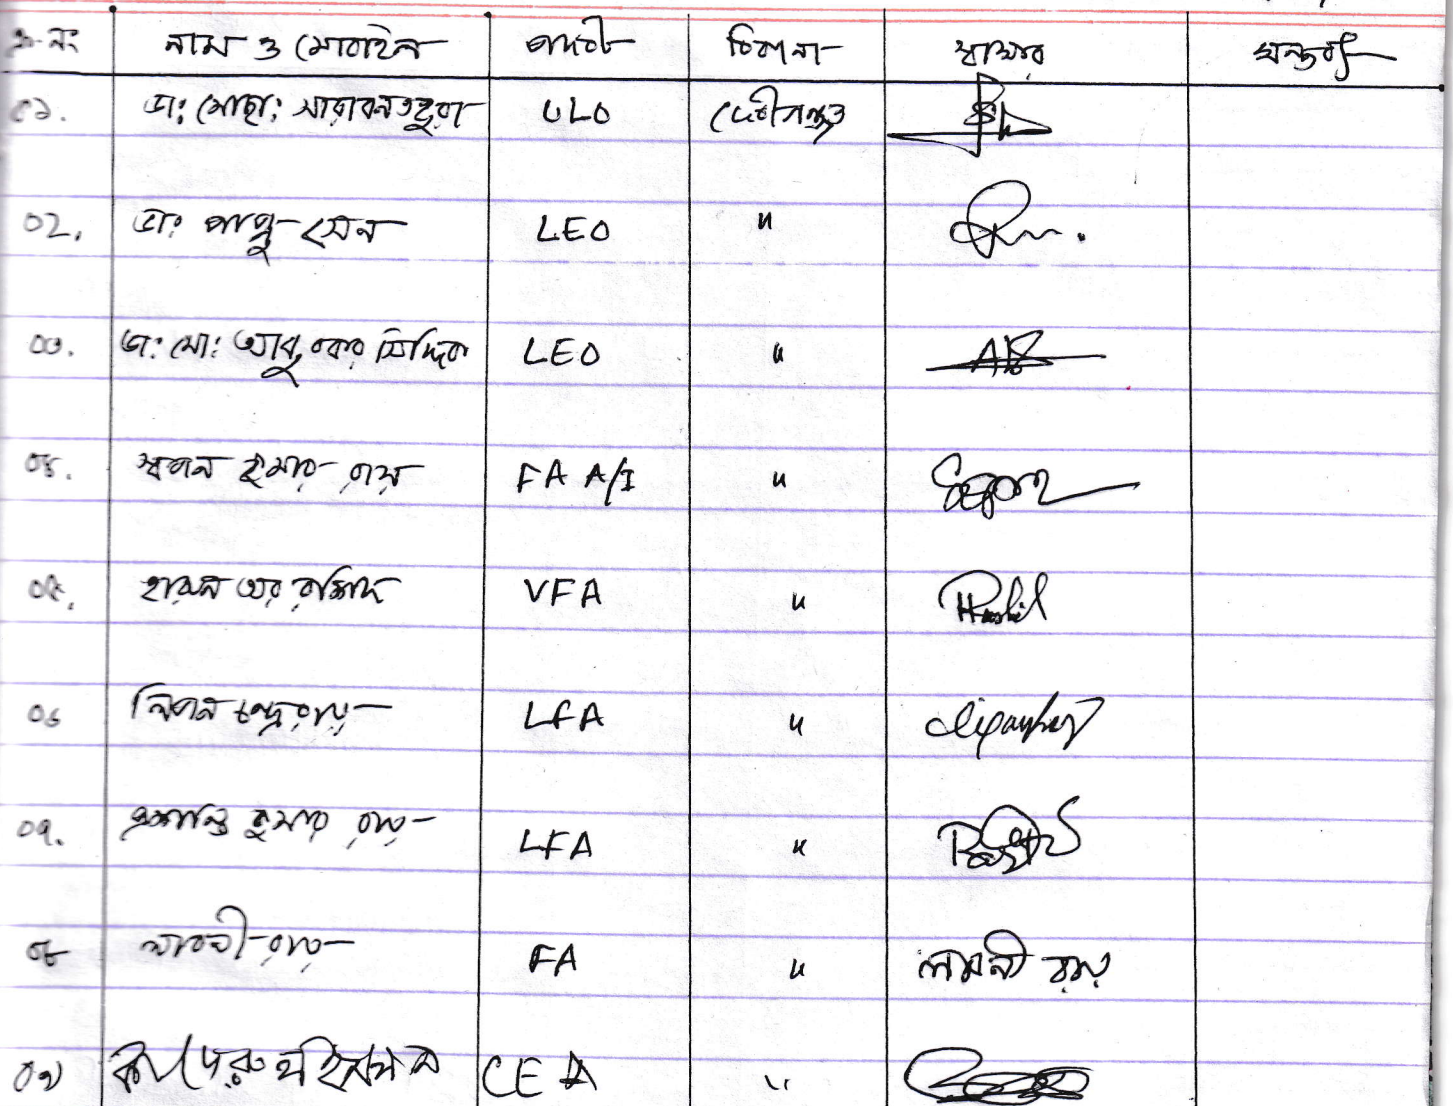 ক্র-নং নাম ও মোবাইল পদবী ঠিকানা স্বাক্ষর মন্তব্য
০১. ডাঃ মোছাঃ ULO দেবীগঞ্জ
০২. ডাঃ পাপ্পু সেন LEO "
০৩. ডাঃ মোঃ আবু বকর সিদ্দিক LEO "
০৪. স্বপন কুমার রায় FA A/I "
০৫. হারুন অর রশিদ VFA " Rashid
০৬ লিপন চন্দ্র রায় LFA "
০৭. প্রশান্ত কুমার রায় LFA "
০৮ লাবনী রায় FA " লাবনী রায়
০৯ CEA "